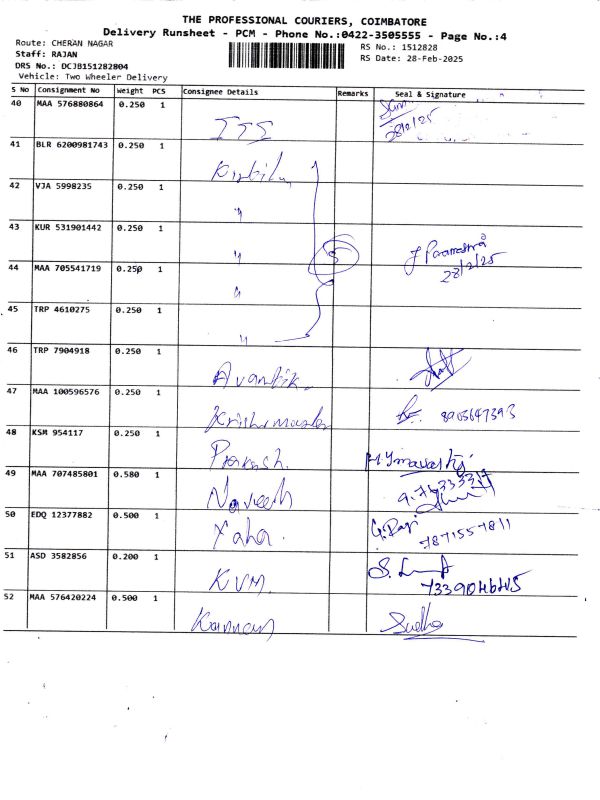 THE PROFESSIONAL COURIERS, COIMBATORE
Delivery Runsheet - PCM - Phone No.:0422-3505555 - Page No.:4
Route: CHERAN NAGAR
RS No.: 1512828
Staff: RAJAN
RS Date: 28-Feb-2025
DRS No.: DCJB151282804
Vehicle: Two Wheeler Delivery
S No Consignment No Weight PCS Consignee Details Remarks Seal & Signature
40 MAA 576880864 0.250 1
28/2/25
41 BLR 6200981743 0.250 1
42 VJA 5998235 0.250 1 "
43 KUR 531901442 0.250 1 " 5
28/2/25
44 MAA 705541719 0.250 1 "
45 TRP 4610275 0.250 1 "
46 TRP 7904918 0.250 1
47 MAA 100596576 0.250 1
48 KSM 954117 0.250 1 Prakash.
49 MAA 707485801 0.580 1 Naveen
50 EDQ 12377882 0.500 1
7871557811
51 ASD 3582856 0.200 1 KVM.
52 MAA 576420224 0.500 1 Kannan Sudha